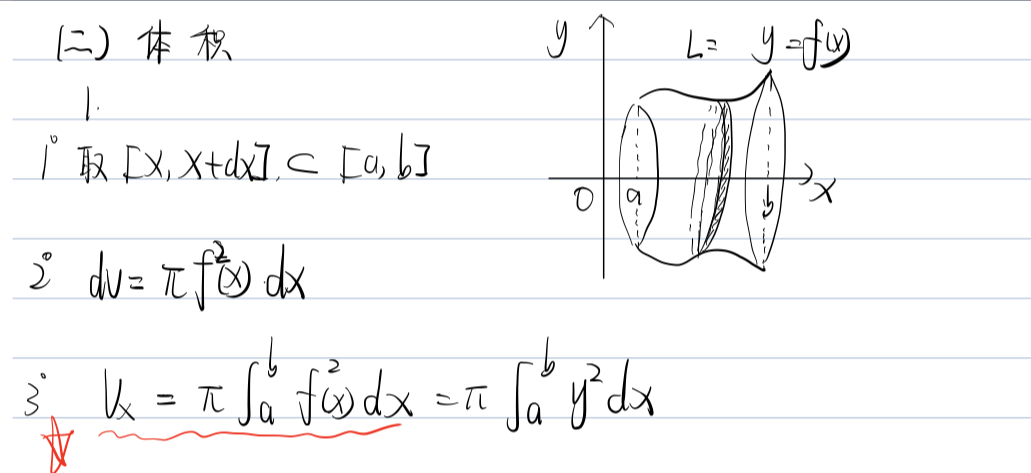 (二) 体积
1.
1° 取 [x, x+dx] ⊂ [a, b]
2° dv = π f²(x) dx
3° Vx = π ∫ₐᵇ f²(x) dx = π ∫ₐᵇ y² dx
y L= y=f(x)
0 a b x